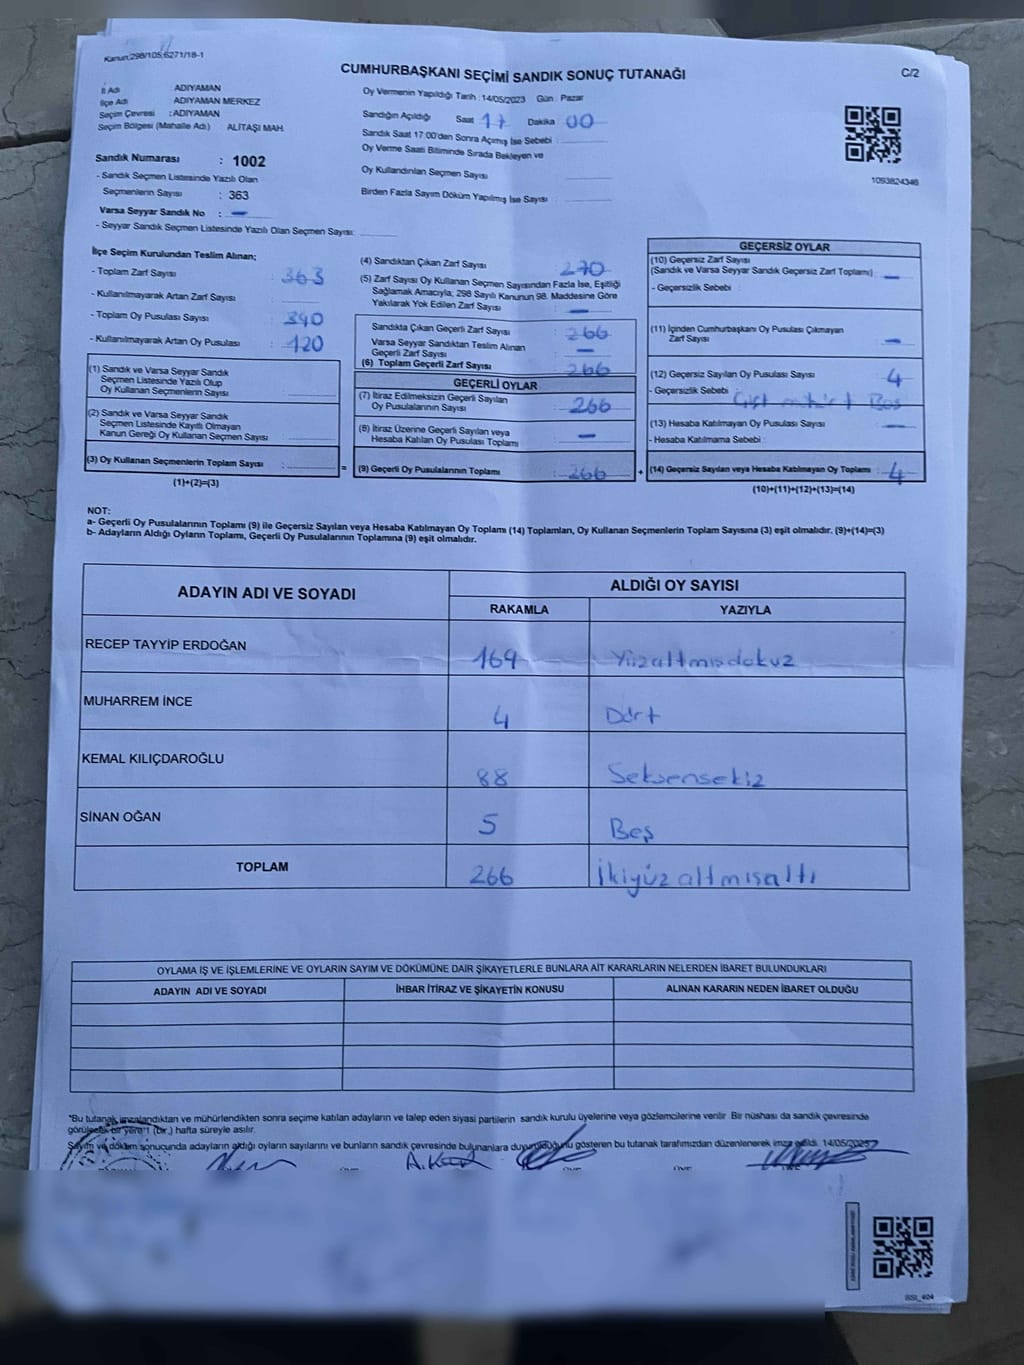 Kanun:298/105,6271/18-1
CUMHURBAŞKANI SEÇİMİ SANDIK SONUÇ TUTANAĞI
C/2
İl Adı : ADIYAMAN
İlçe Adı : ADIYAMAN MERKEZ
Seçim Çevresi : ADIYAMAN
Seçim Bölgesi (Mahalle Adı) ALİTAŞI MAH.
Sandık Numarası : 1002
- Sandık Seçmen Listesinde Yazılı Olan
Seçmenlerin Sayısı : 363
Varsa Seyyar Sandık No : —
- Seyyar Sandık Seçmen Listesinde Yazılı Olan Seçmen Sayısı:
Oy Vermenin Yapıldığı Tarih : 14/05/2023 Gün : Pazar
Sandığın Açıldığı Saat 17 Dakika 00
Sandık Saat 17:00'den Sonra Açımış İse Sebebi :
Oy Verme Saati Bitiminde Sırada Bekleyen ve
Oy Kullandırılan Seçmen Sayısı
Birden Fazla Sayım Döküm Yapılmış İse Sayısı
1093824346
İlçe Seçim Kurulundan Teslim Alınan;
- Toplam Zarf Sayısı : 363
- Kullanılmayarak Artan Zarf Sayısı :
- Toplam Oy Pusulası Sayısı : 390
- Kullanılmayarak Artan Oy Pusulası : 120
(1) Sandık ve Varsa Seyyar Sandık
Seçmen Listesinde Yazılı Olup
Oy Kullanan Seçmenlerin Sayısı :
(2) Sandık ve Varsa Seyyar Sandık
Seçmen Listesinde Kayıtlı Olmayan
Kanun Gereği Oy Kullanan Seçmen Sayısı :
(3) Oy Kullanan Seçmenlerin Toplam Sayısı :
(1)+(2)=(3)
=
(4) Sandıktan Çıkan Zarf Sayısı : 270
(5) Zarf Sayısı Oy Kullanan Seçmen Sayısından Fazla İse, Eşitliği
Sağlamak Amacıyla; 298 Sayılı Kanunun 98. Maddesine Göre
Yakılarak Yok Edilen Zarf Sayısı : —
Sandıkta Çıkan Geçerli Zarf Sayısı : 266
Varsa Seyyar Sandıktan Teslim Alınan
Geçerli Zarf Sayısı : —
(6) Toplam Geçerli Zarf Sayısı 266
GEÇERLİ OYLAR
(7) İtiraz Edilmeksizin Geçerli Sayılan
Oy Pusulalarının Sayısı : 266
(8) İtiraz Üzerine Geçerli Sayılan veya
Hesaba Katılan Oy Pusulası Toplamı : —
(9) Geçerli Oy Pusulalarının Toplamı : 266
+
GEÇERSİZ OYLAR
(10) Geçersiz Zarf Sayısı
(Sandık ve Varsa Seyyar Sandık Geçersiz Zarf Toplamı) —
- Geçersizlik Sebebi :
(11) İçinden Cumhurbaşkanı Oy Pusulası Çıkmayan
Zarf Sayısı : —
(12) Geçersiz Sayılan Oy Pusulası Sayısı : 4
- Geçersizlik Sebebi : Boş
(13) Hesaba Katılmayan Oy Pusulası Sayısı : —
- Hesaba Katılmama Sebebi :
(14) Geçersiz Sayılan veya Hesaba Katılmayan Oy Toplamı : 4
(10)+(11)+(12)+(13)=(14)
NOT:
a- Geçerli Oy Pusulalarının Toplamı (9) ile Geçersiz Sayılan veya Hesaba Katılmayan Oy Toplamı (14) Toplamları, Oy Kullanan Seçmenlerin Toplam Sayısına (3) eşit olmalıdır. (9)+(14)=(3)
b- Adayların Aldığı Oyların Toplamı, Geçerli Oy Pusulalarının Toplamına (9) eşit olmalıdır.
ADAYIN ADI VE SOYADI
ALDIĞI OY SAYISI
RAKAMLA YAZIYLA
RECEP TAYYİP ERDOĞAN 169 Yüzaltmışdokuz
MUHARREM İNCE 4 Dört
KEMAL KILIÇDAROĞLU 88 Seksensekiz
SİNAN OĞAN 5 Beş
TOPLAM 266 İkiyüzaltmışaltı
OYLAMA İŞ VE İŞLEMLERİNE VE OYLARIN SAYIM VE DÖKÜMÜNE DAİR ŞİKAYETLERLE BUNLARA AİT KARARLARIN NELERDEN İBARET BULUNDUKLARI
ADAYIN ADI VE SOYADI İHBAR İTİRAZ VE ŞİKAYETİN KONUSU ALINAN KARARIN NEDEN İBARET OLDUĞU
*Bu tutanak imzalandıktan ve mühürlendikten sonra seçime katılan adayların ve talep eden siyasi partilerin sandık kurulu üyelerine veya gözlemcilerine verilir. Bir nüshası da sandık çevresinde
görülecek bir yere 1 (bir) hafta süreyle asılır.
Sayım ve döküm sonucunda adayların aldığı oyların sayılarını ve bunların sandık çevresinde bulunanlara duyurulduğunu gösteren bu tutanak tarafımızdan düzenlenerek imza edildi. 14/05/2023